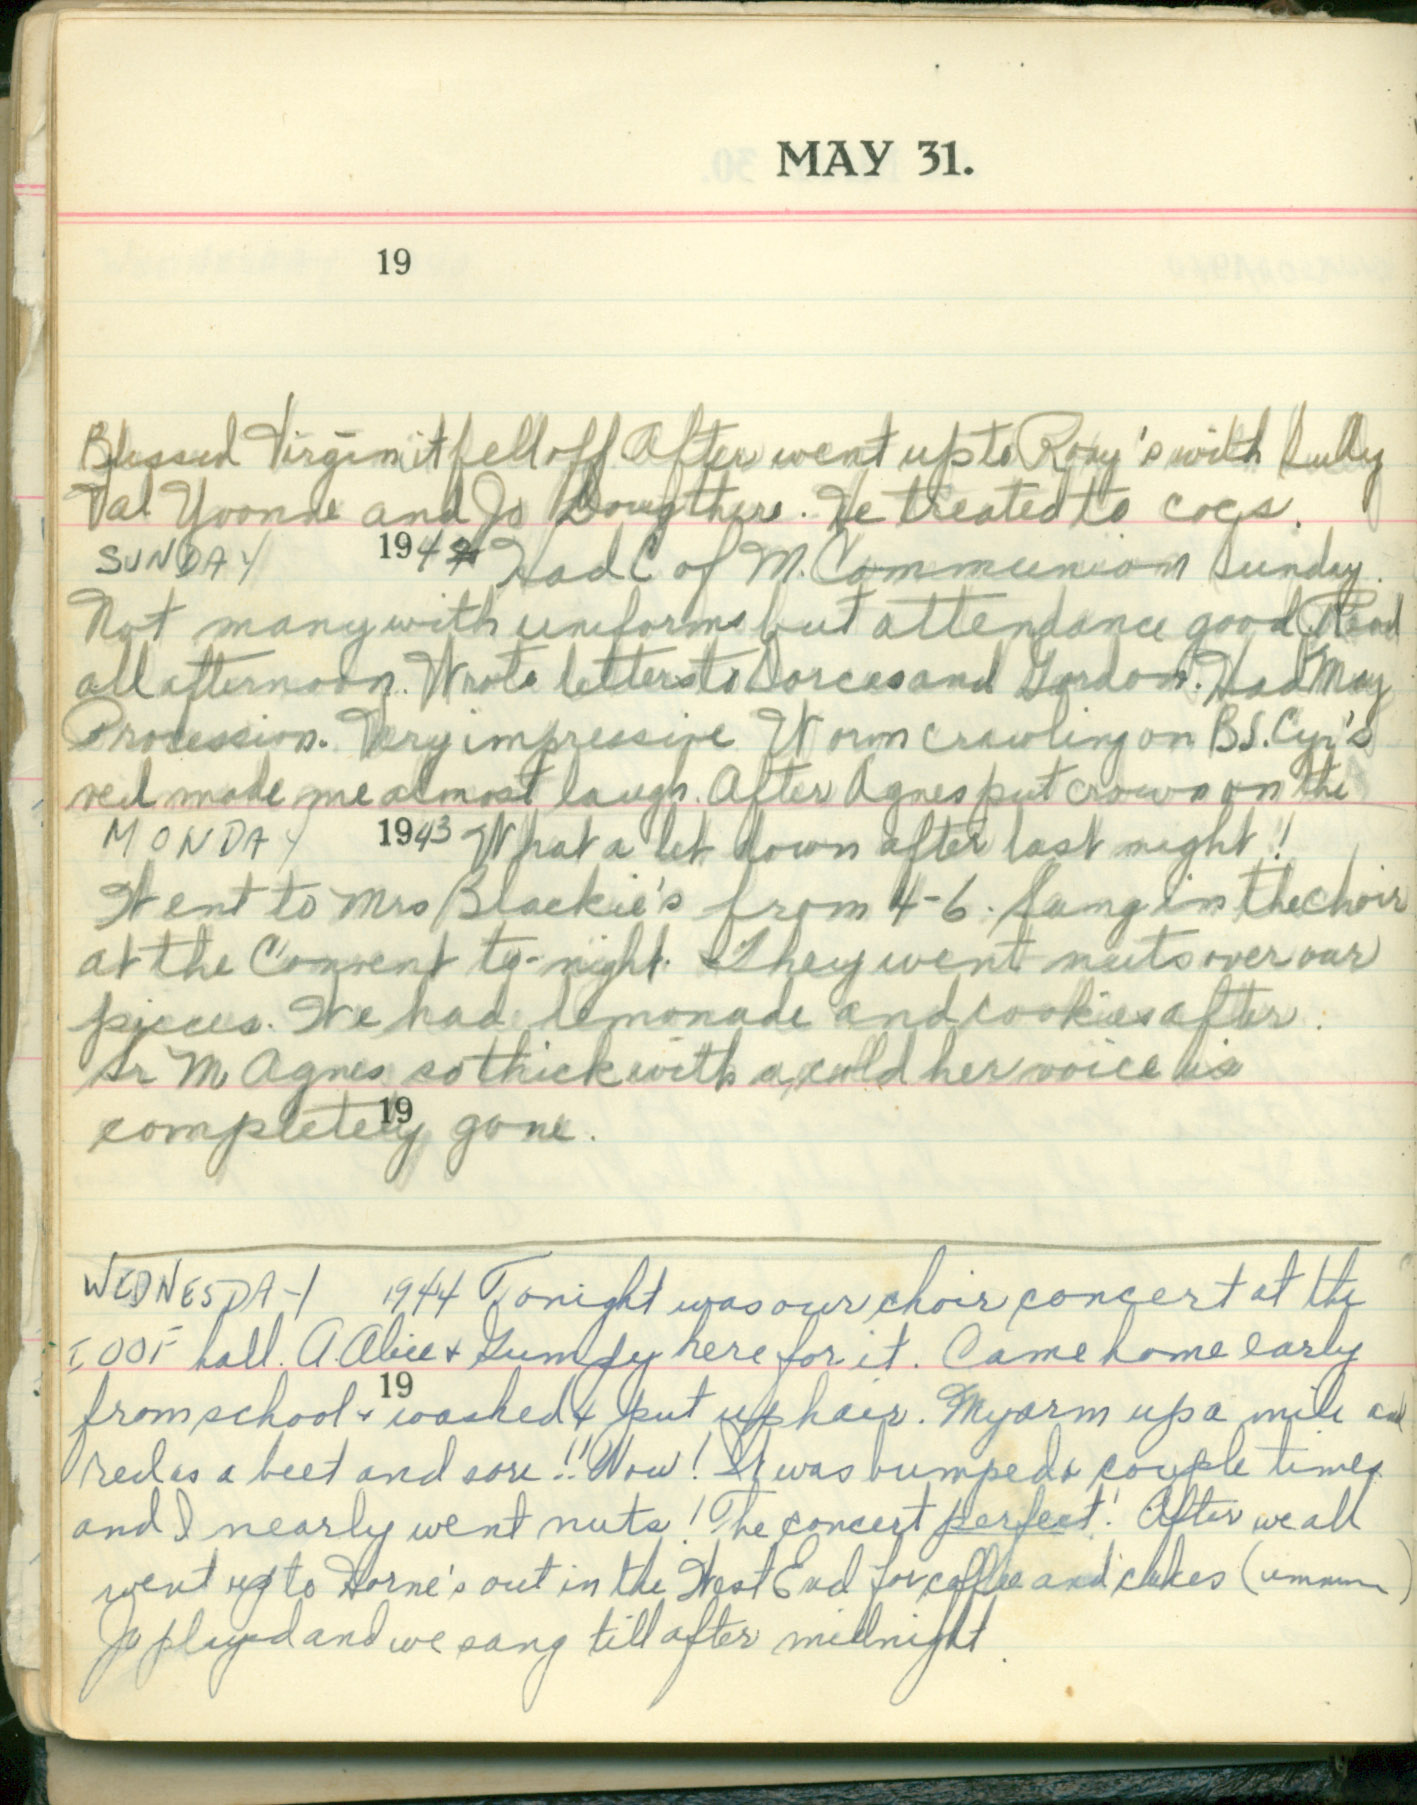 MAY 31.
19
Blessed Virgin it fell off After went up to Roxy's with Sully
Val Yvonne and Jo Doug there. He treated to cocs.
SUNDAY 194 Had C of M. Communion Sunday.
Not many with uniforms but attendance good Read
all afternoon. Wrote letters to Dorcas and Gordon. Had May
Procession. Very impressive Worm crawling on B S. Cyr's
veil made me almost laugh. After Agnes put crown on the
MONDAY 1943 What a let down after last night!
Went to Mrs Blackie's from 4-6. Sang in the choir
at the Convent to-night. They went nuts over our
pieces. We had lemonade and cookies after.
Sr M Agnes so thick with a cold her voice is
19
completely gone.
WEDNESDAY 1944 Tonight was our choir concert at the
IOOF hall. A. Alice + here for it. Came home early
19
from school + washed + put up hair. My arm up a mile and
red as a beet and sore!! Wow! It was bumped a couple times
and I nearly went nuts! The concert perfect! After we all
went up to Horne's out in the West End for coffee and cakes (ummm)
Jo played and we sang till after midnight.